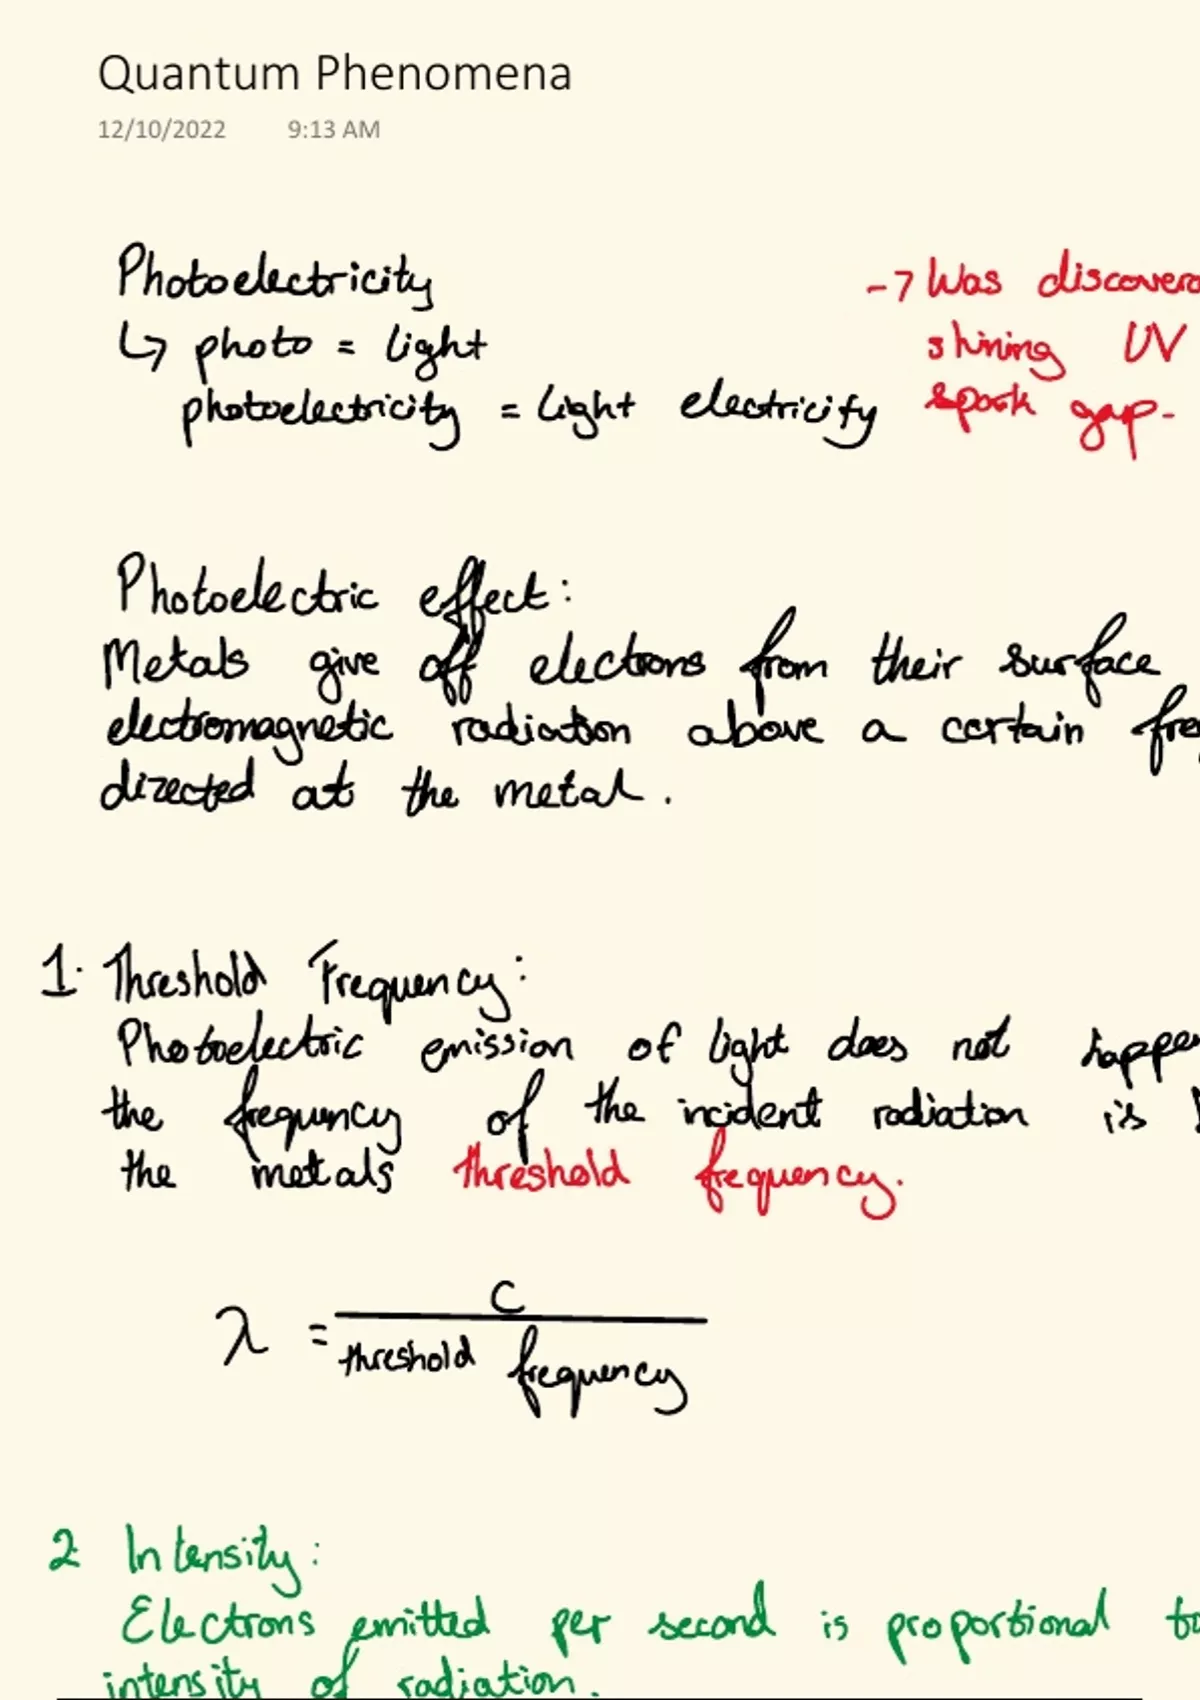 Quantum Phenomena
12/10/2022 9:13 AM
Photoelectricity
↳ photo = light
photoelectricity = light electricity
→ Was discovere
shining UV
spark gap.
Photoelectric effect:
Metals give off electrons from their surface
electromagnetic radiation above a certain fre
directed at the metal.
1. Threshold Frequency:
Photoelectric emission of light does not happe
the frequency of the incident radiation is
the metals threshold frequency.
λ = c
threshold frequency
2 Intensity:
Electrons emitted per second is proportional to
intensity of radiation.